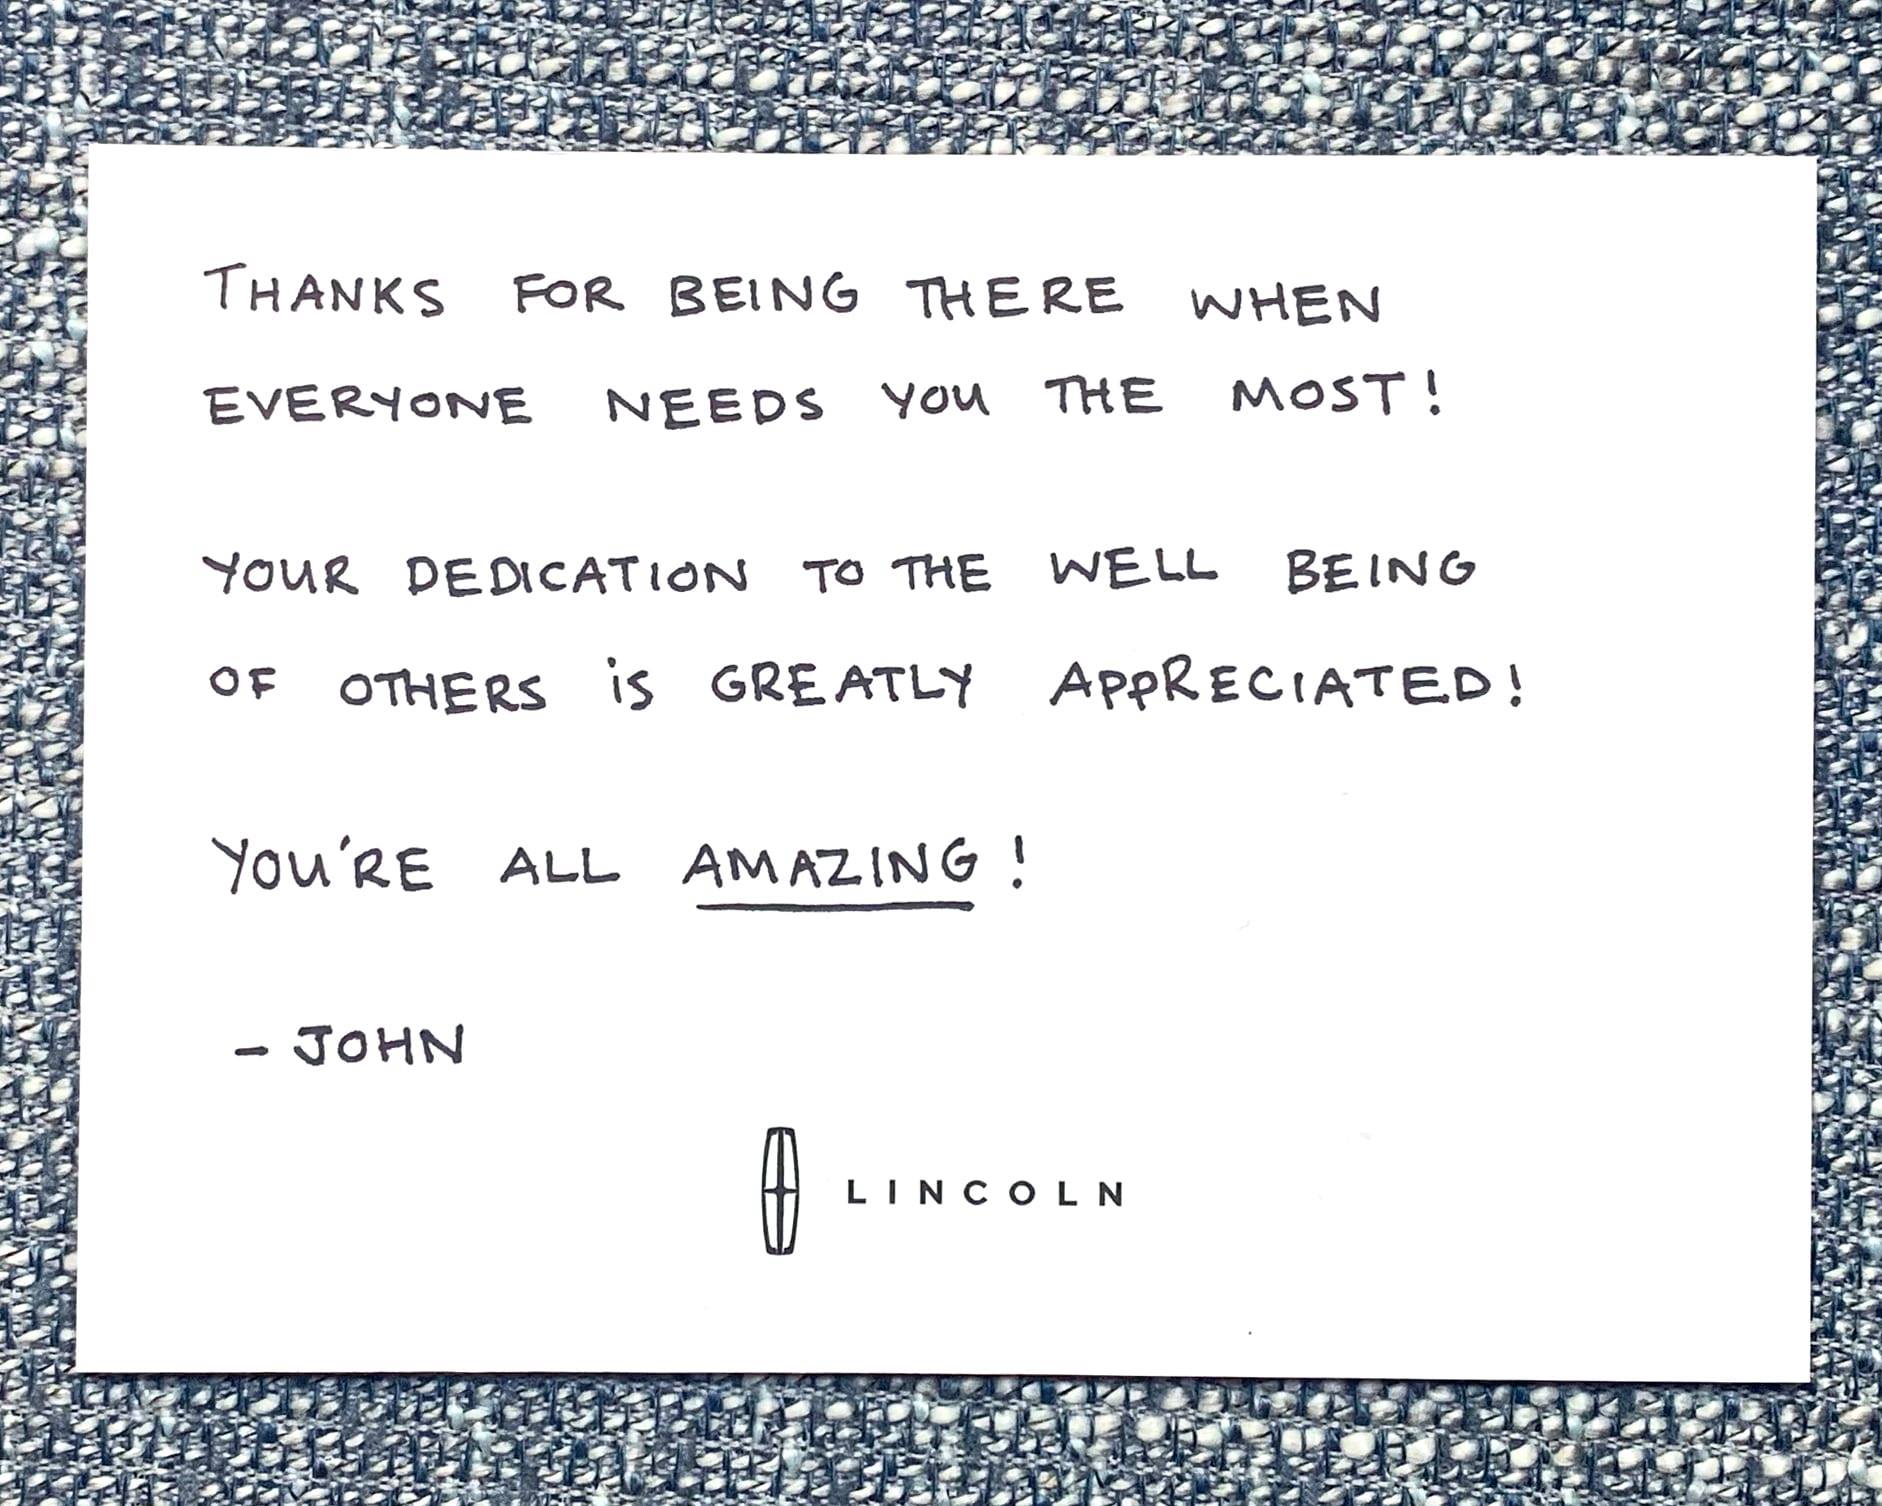 THANKS FOR BEING THERE WHEN
EVERYONE NEEDS YOU THE MOST!
YOUR DEDICATION TO THE WELL BEING
OF OTHERS iS GREATLY APPRECIATED!
YOU'RE ALL AMAZING!
- JOHN
LINCOLN